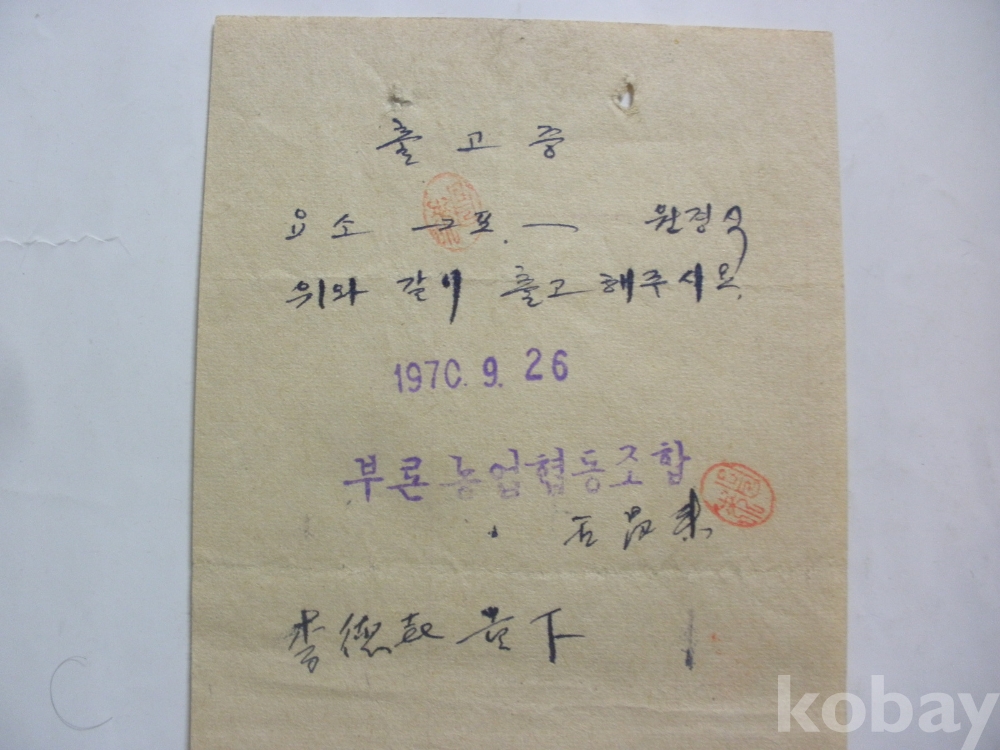 출고증
요소 포. 원경수
위와 같이 출고해주시오.
1970. 9. 26
부론농업협동조합
石昌東
李德 貴下
kobay